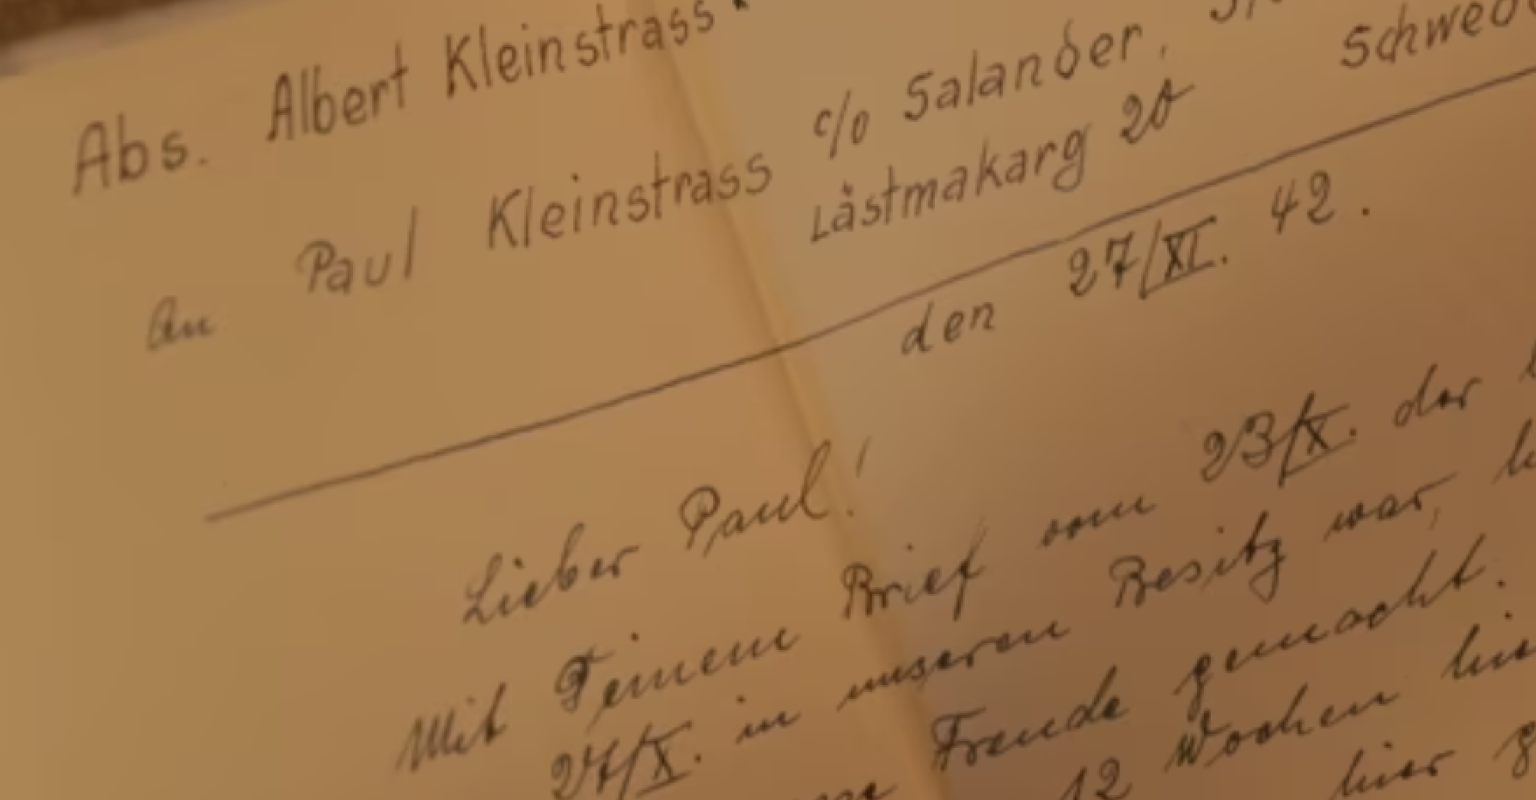 Abs. Albert Kleinstrass
An Paul Kleinstrass c/o Salander,
Låstmakarg 20
den 27/XI. 42.
Lieber Paul!
Mit Deinem Brief vom 23/X. der
27/X. in unseren Besitz war,
Freude gemacht.
12 Wochen
hier